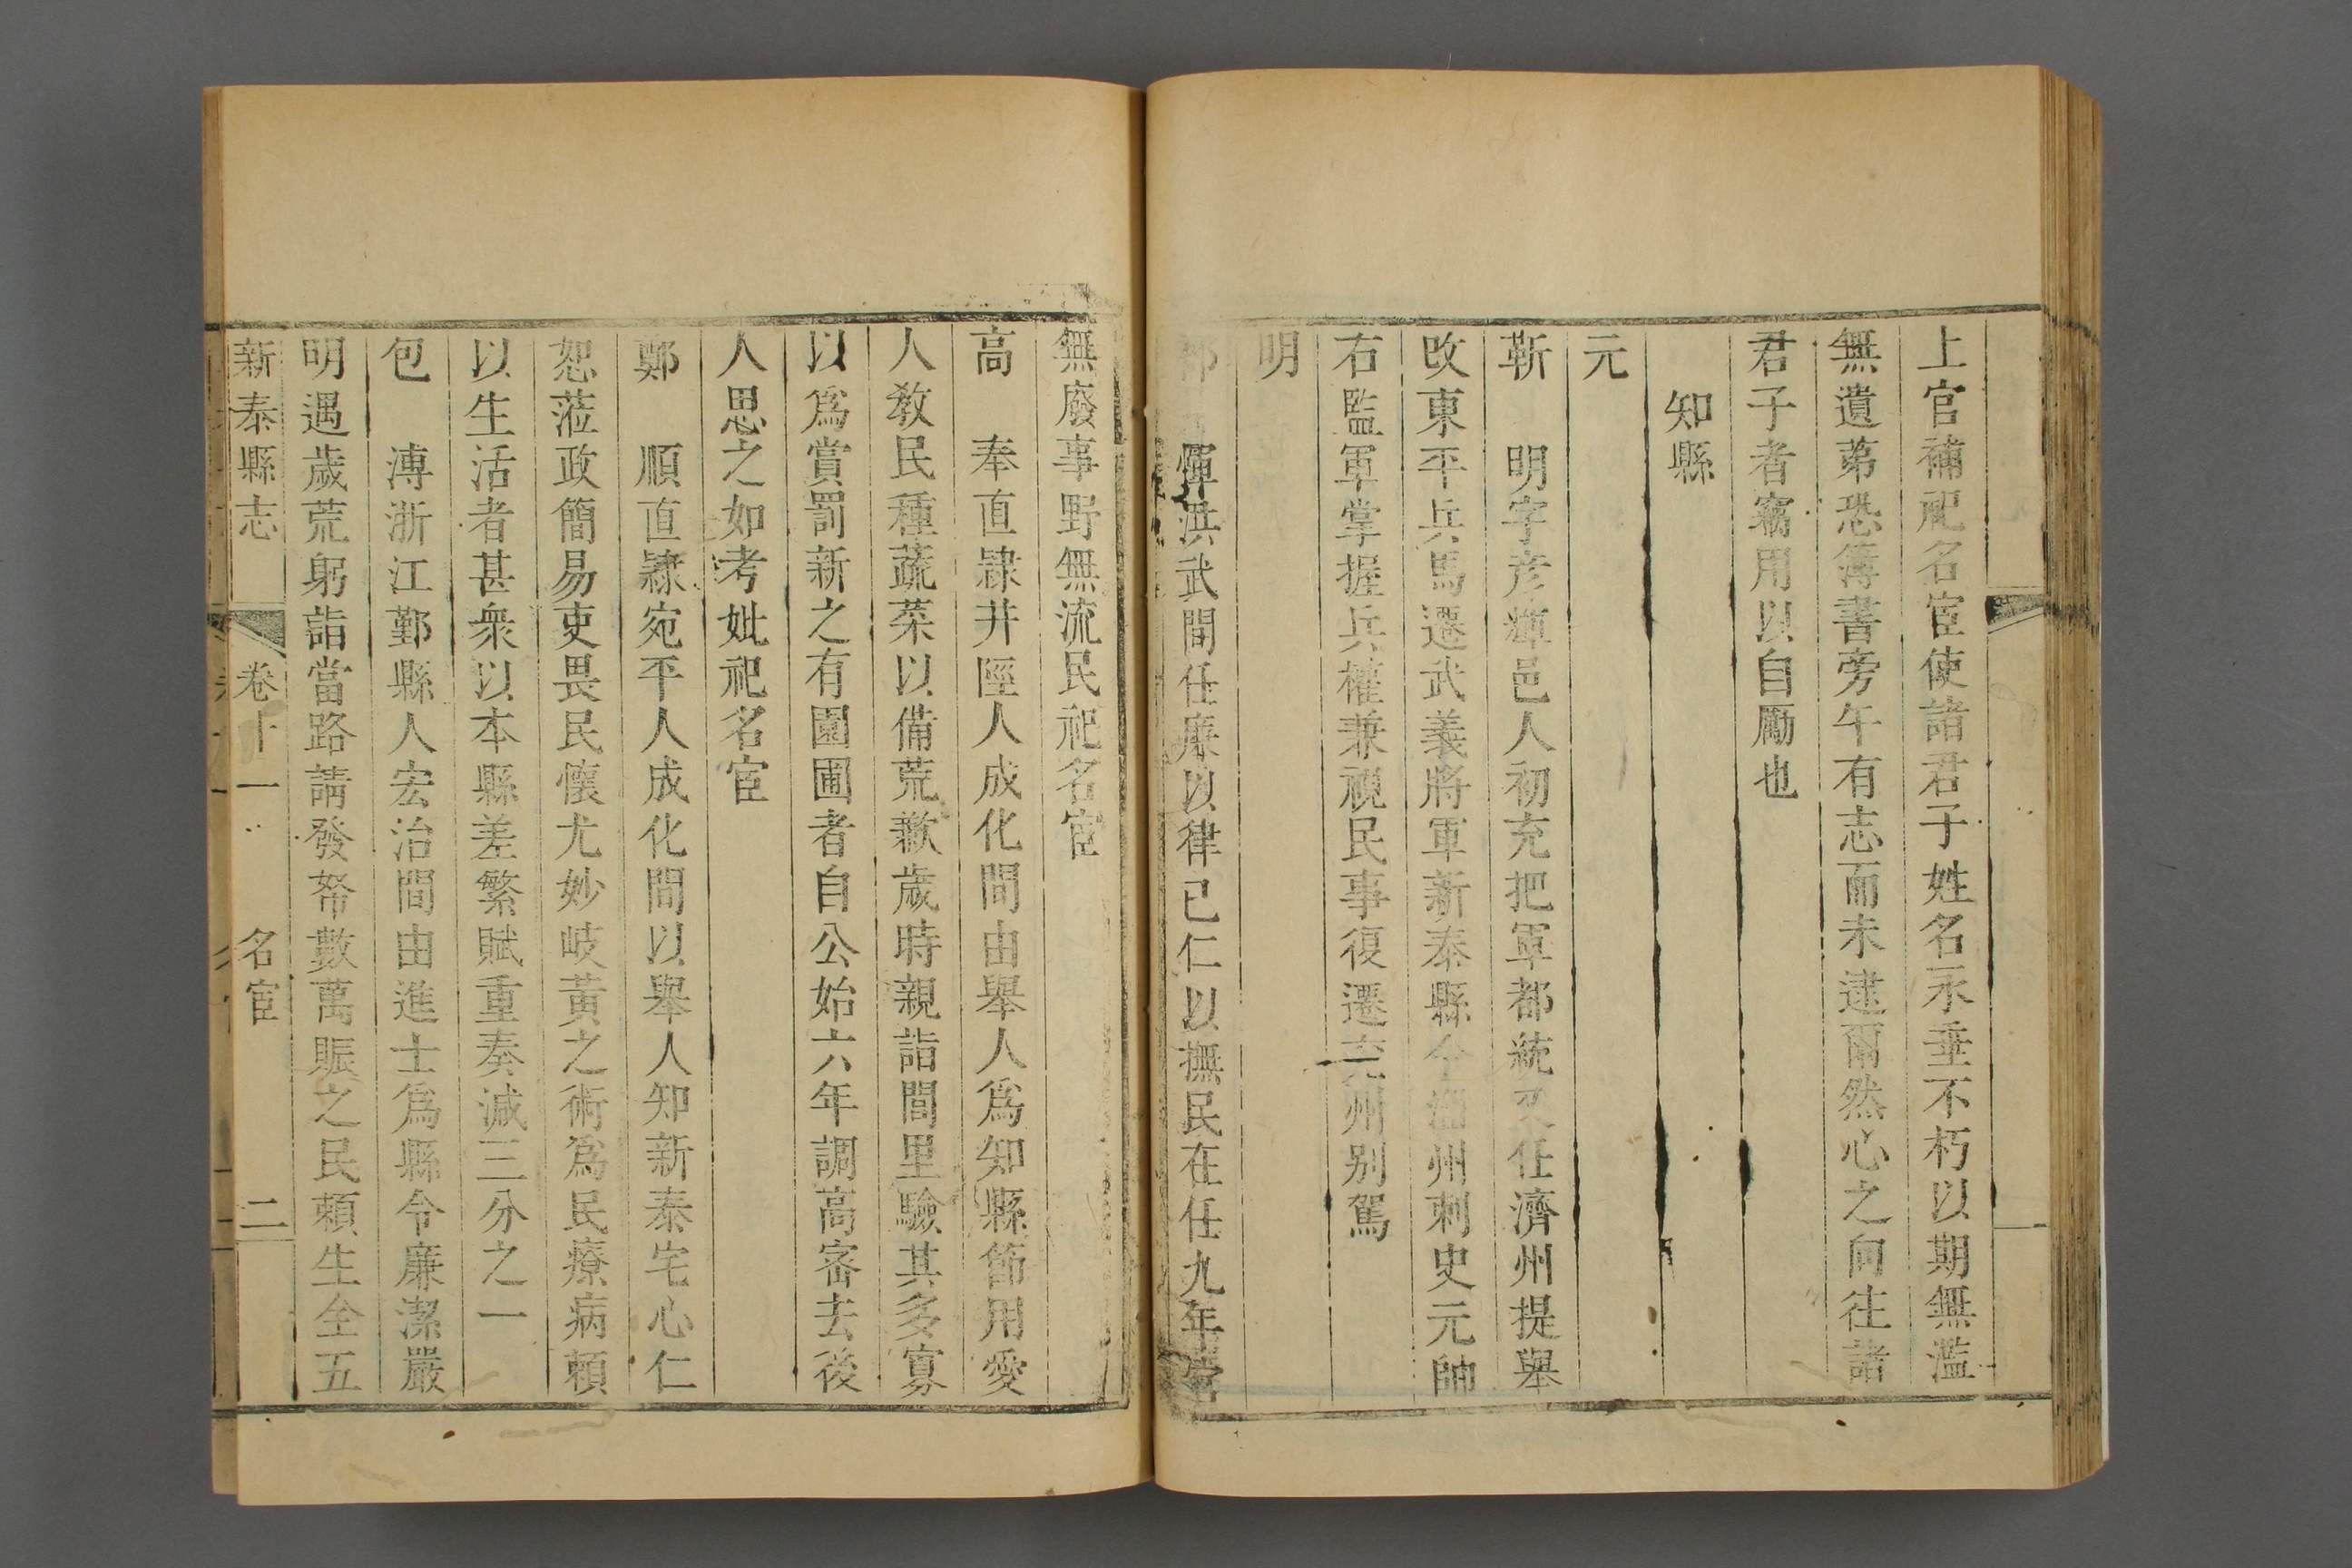 上官補祀名宦使諸君子姓名永垂不朽以期無濫
無遺第恐簿書旁午有志而未逮爾然心之向往諸
君子者竊用以自勵也
知縣
元
靳　明字彥輝邑人初充把軍都統又任濟州提舉
改東平兵馬遷武義將軍新泰縣令淄州刺史元帥
右監軍掌握兵權兼視民事復遷兗州别駕
明
暉洪武間任廉以律己仁以撫民在任九年
無廢事野無流民祀名宦
高　奉直隸井陘人成化間由舉人爲知縣節用愛
人教民種蔬菜以備荒歉歲時親詣閭里驗其多寡
以爲賞罰新之有園圃者自公始六年調高密去後
人思之如考妣祀名宦
鄭　順直隸宛平人成化間以舉人知新泰宅心仁
恕蒞政簡易吏畏民懷尤妙岐黃之術爲民療病賴
以生活者甚衆以本縣差繁賦重奏減三分之一
包　溥浙江鄞縣人宏治間由進士爲縣令廉潔嚴
明遇歲荒躬詣當路請發帑數萬賑之民賴生全五
新泰縣志　卷十一　名宦　二